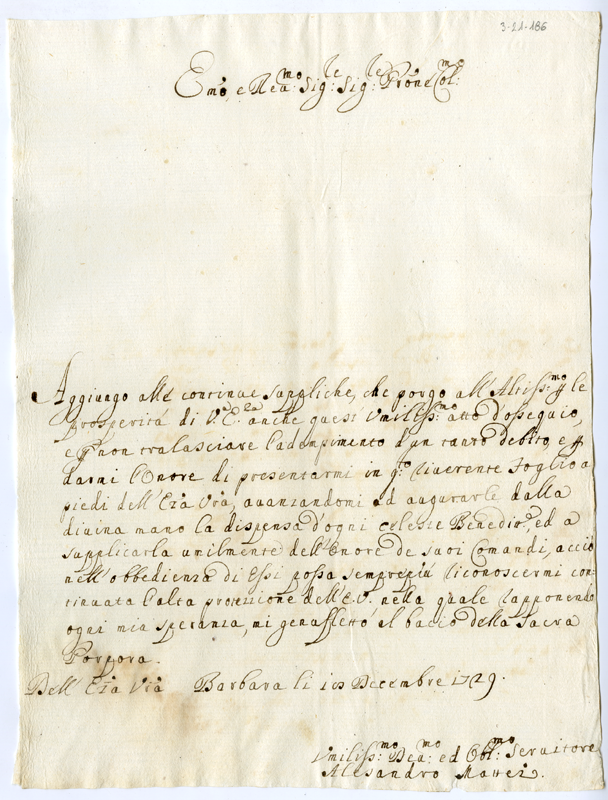 3-21-186
Emo, e Reu:mo Sig:re Sig:re Prone Col:mo
Aggiungo alle continue suppliche, che porgo all'Altiss:mo p le
prosperità di V.a E.za anche quest'Vmiliss:mo atto d'ossequio,
e p non tralasciare l'adempimento d'un tanto debito, e p
darmi l'Onore di presentarmi in q.o riuerente Foglio a
piedi dell'Eza Vra, auanzandomi ad augurarle dalla
diuina mano la dispensa d'ogni celeste Benediz.e, ed a
supplicarla umilmente dell'Onore de suoi Comandi, acciò
nell'obbedienza di Essi possa semprepiù riconoscermi con-
tinuata l'alta protezione dell'E.V. nella quale rapponendo
ogni mia speranza, mi genufletto al bacio della Sacra
Porpora.
Dell'Eza Vra Barbara li Decembre 1729.
Vmiliss:mo Deu:mo ed Obl:mo Seruitore
Alesandro Mattei.